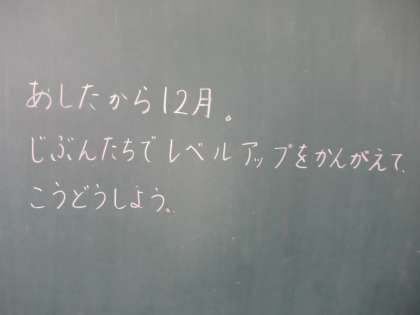 あしたから12月。
じぶんたちでレベルアップをかんがえて、
こうどうしよう。